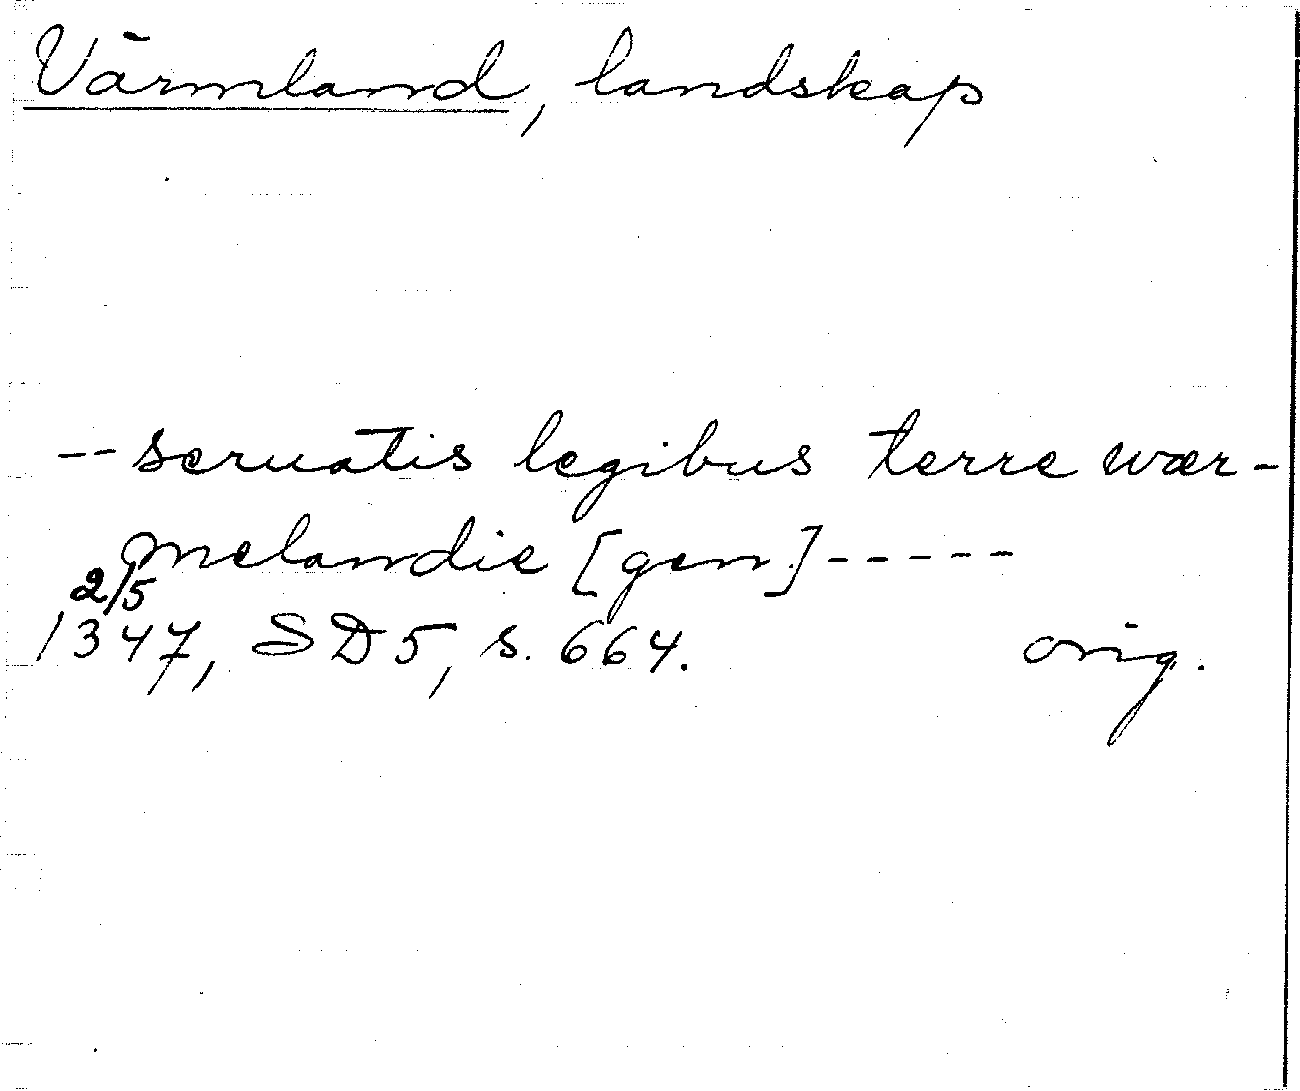 Värmland, landskap
-- seruatis legibus terre wær-
melandie [gen.] -----
2/5
1347, SD 5, s. 664. orig.